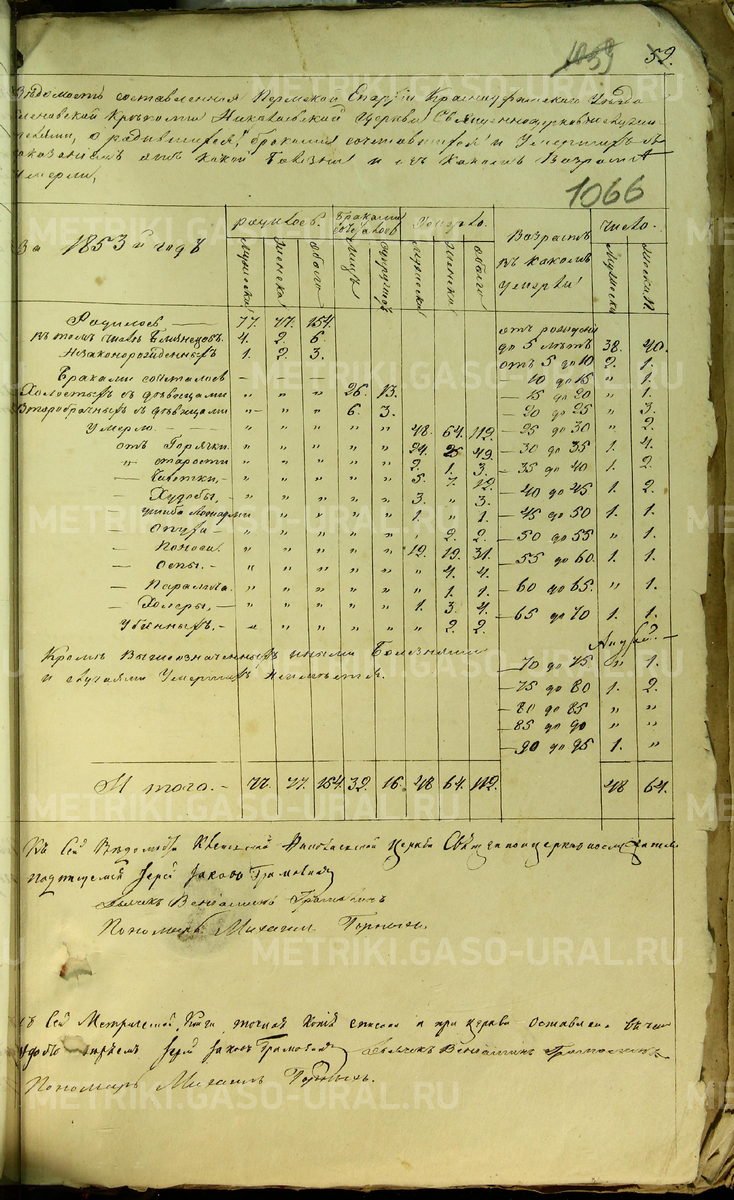 1059 52.
Вѣдомость составленная Пермской Епархіи Красноуфимскаго Уѣзда
Николаевской Церкви Священноцерковнослужи
телями, о родившихся, бракомъ сочетавшихся и Умершихъ съ
показаніемъ отъ какой болезни и въ какомъ Возрастѣ
Умерли,
1066
За 1853й годъ
родилось. Браками сочеталось Умерло. Возрастъ въ какомъ умерли число.
Мужеска Женска Обоего Лицъ Супружествъ Мужеска Женска Обоего Мужеска Женска
Родилось 77. 77. 154. отъ рожденія
въ томъ числѣ Близнецовъ. 4. 2. 6. до 5 лѣтъ 38. 40.
Незаконорожденныхъ 1. 2. 3. отъ 5 до 10 2. 1.
Браками сочетались — — — — 10 до 15 „ 1.
Холостыхъ съ дѣвицами „ „ „ 26. 13. — 15 до 20 „ 1.
Второбрачныхъ съ дѣвицами „ „ „ 6. 3. — 20 до 25 „ 3.
Умерло. — „ „ „ „ „ 48. 64. 112. — 25 до 30 „ 2.
отъ Горячки. „ „ „ „ „ 24. 25 49. — 30 до 35 1. 4.
„ старости „ „ „ „ „ 2. 1. 3. — 35 до 40 1. 2.
— Чахотки, — „ „ „ „ „ 5. 7. 12. — 40 до 45 1. 2.
— Худобы, „ „ „ „ „ 3. „ 3.
ушиба лошадми „ „ „ „ „ 1. „ 1. — 45 до 50 1. 1.
— „ „ „ „ „ „ 2. 2. — 50 до 55 „ 1.
— Поноса. „ „ „ „ „ 12. 19. 31. — 55 до 60. 1. 1.
— Оспы. — „ „ „ „ „ „ 4. 4.
— Паралича. „ „ „ „ „ „ 1. 1. — 60 до 65. „ 1.
— Холеры, — „ „ „ „ „ 1. 3. 4. — 65 до 70 1. 1.
Убіенныхъ. — „ „ „ „ „ 2. 2.
Кромѣ Вышеозначенныхъ иными Болезнями — 70 до 75 „ 1.
и случаями Умершихъ неимѣется. — 75 до 80 1. 2.
— 80 до 85 „ „
— 85 до 90 „ „
— 90 до 95 1. „
Итого. — 77. 77. 154. 32. 16. 48 64. 112. 48 64.
Къ Сей Вѣдомости Николаевской Церкви
подписуемся Іерей Іаковъ
Дьячекъ Веніаминъ
Пономарь Михаилъ
Сей Метрической Книги точная Копія списана и при церкви Оставлена въ чемъ
Іерей Іаковъ Дьячекъ Веніаминъ
Пономарь Михаилъ
METRIKI.GASO-URAL.RU